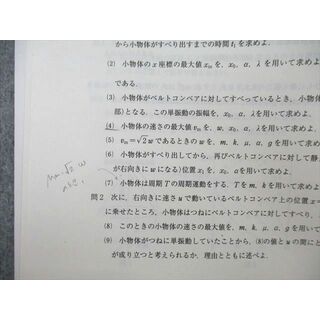 から小物体がすべり出すまでの時間 t₁ を求めよ.
(2) 小物体の x 座標の最大値 xₘ を, x₀, α, λ を用いて求めよ.
である.
(3) 小物体がベルトコンベアに対してすべっているとき, 小物体
部)となる. この単振動の振幅を, x₀, α, λ を用いて求めよ.
(4) 小物体の速さの最大値 vₘ を, w, x₀, α, λ を用いて求めよ.
(5) vₘ = √2 w であるときの w を, m, k, μ, α, g を用いて求め
(6) 小物体がすべり出してから, 再びベルトコンベアに対して静
が右向きに w になる) 位置 x₁ を, x₀, α を用いて求めよ.
(7) 小物体は周期 T の周期運動をする. T を m, k を用いて求めよ.
問2 次に, 右向きに速さ u で動いているベルトコンベア上の位置 x =
に乗せたところ, 小物体はつねにベルトに対してすべり,
(8) このときの小物体の速さの最大値を, m, k, μ, α, g を
(9) 小物体がつねに単振動していたことから, (8)の値と u の間にど
が成り立つと考えられるか. 理由とともに述べよ.
√2 w